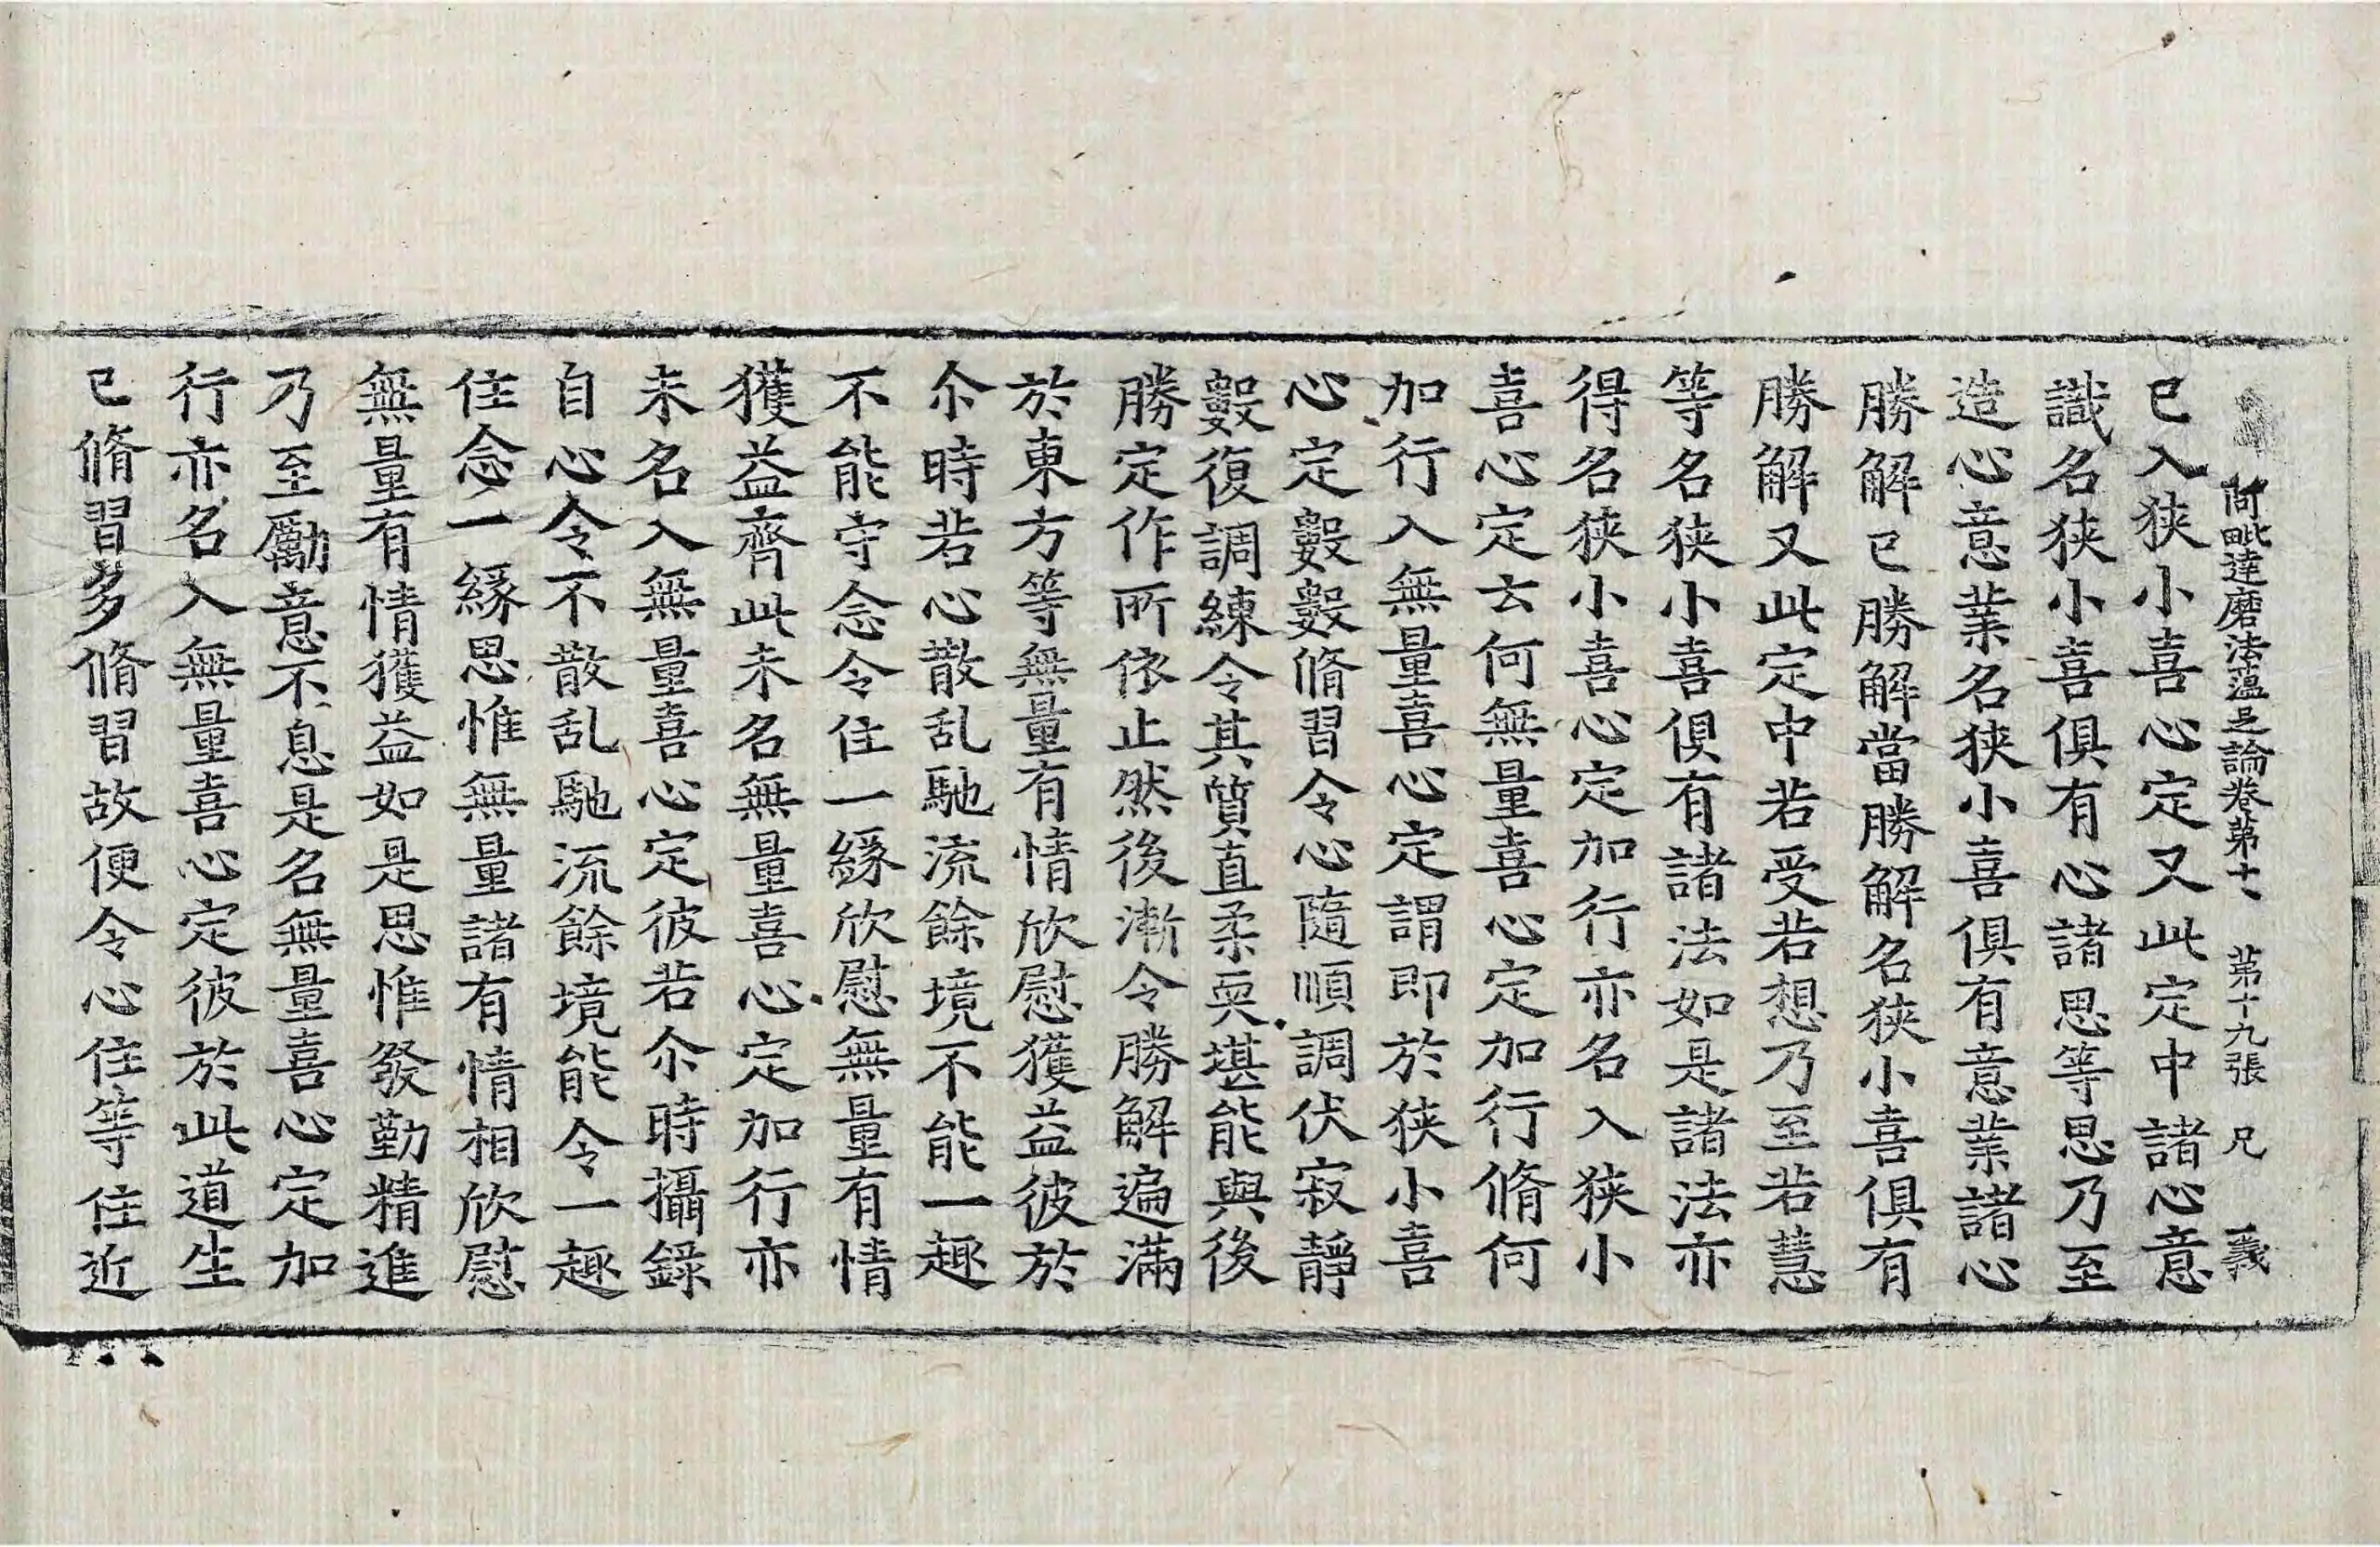 阿毗達磨法蕴足論卷苐十 苐十九張 兄 義
已入狹小喜心定又此定中諸心意
識名狹小喜俱有心諸思等思乃至
造心意業名狹小喜俱有意業諸心
勝解已勝解當勝解名狹小喜俱有
勝解又此定中若受若想乃至若慧
等名狹小喜俱有諸法如是諸法亦
得名狹小喜心定加行亦名入狹小
喜心定云何無量喜心定加行脩何
加行入無量喜心定謂即於狹小喜
心定數數脩習令心隨順調伏寂靜
數復調練令其質直柔耎堪能與後
勝定作所依止然後漸令勝解遍滿
於東方等無量有情欣慰獲益彼於
尒時若心散乱馳流餘境不能一趣
不能守念令住一緣欣慰無量有情
獲益齊此未名無量喜心定加行亦
未名入無量喜心定彼若尒時攝錄
自心令不散乱馳流餘境能令一趣
住念一緣思惟無量諸有情相欣慰
無量有情獲益如是思惟發勤精進
乃至勵意不息是名無量喜心定加
行亦名入無量喜心定彼於此道生
已脩習多脩習故便令心住等住近